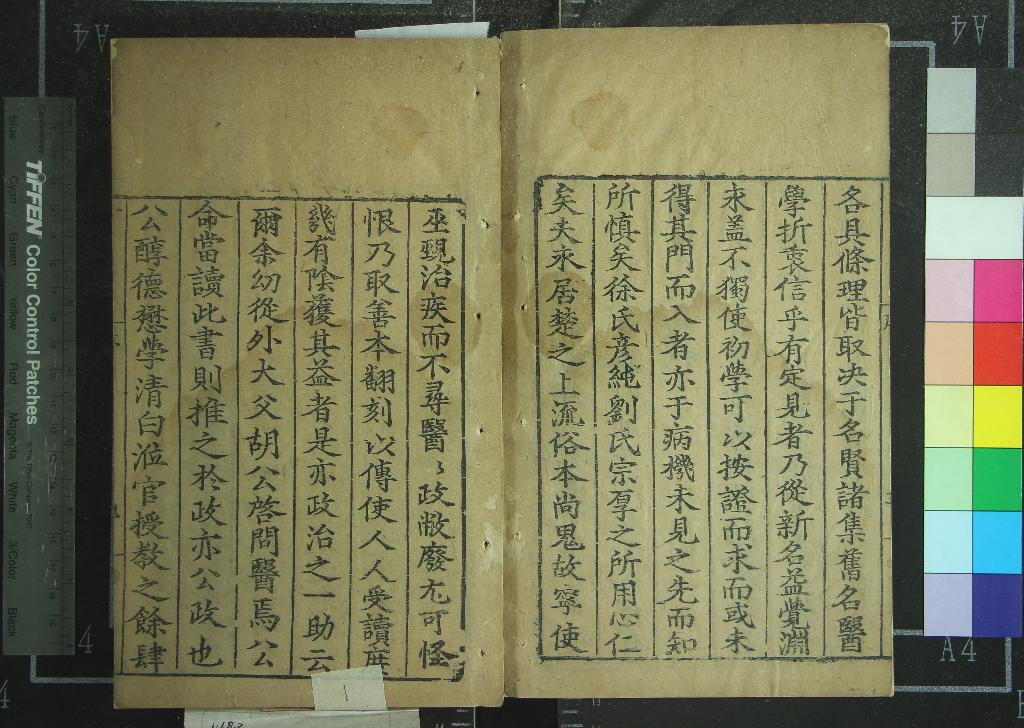 各具條理皆取决于名賢諸集舊名醫
學折衷信乎有定見者乃從新名益覺淵
永盖不獨使初學可以按證而求而或未
得其門而入者亦于病機未見之先而知
所慎矣徐氏彦純劉氏宗厚之所用心仁
矣夫永居楚之上流俗本尚鬼故寧使
巫覡治疾而不尋醫〻政敝廢尤可怪
恨乃取善本翻刻以傳使人人受讀庶
幾有陰獲其益者是亦政治之一助云
爾余幼從外大父胡公啓問醫焉公
命當讀此書則推之於政亦公政也
公醇德懋學清白涖官授教之餘肆
TIFFEN Color Control Patches
Blue Cyan Green Yellow Red Magenta White 3/Color Black
A4
A4
A4
1